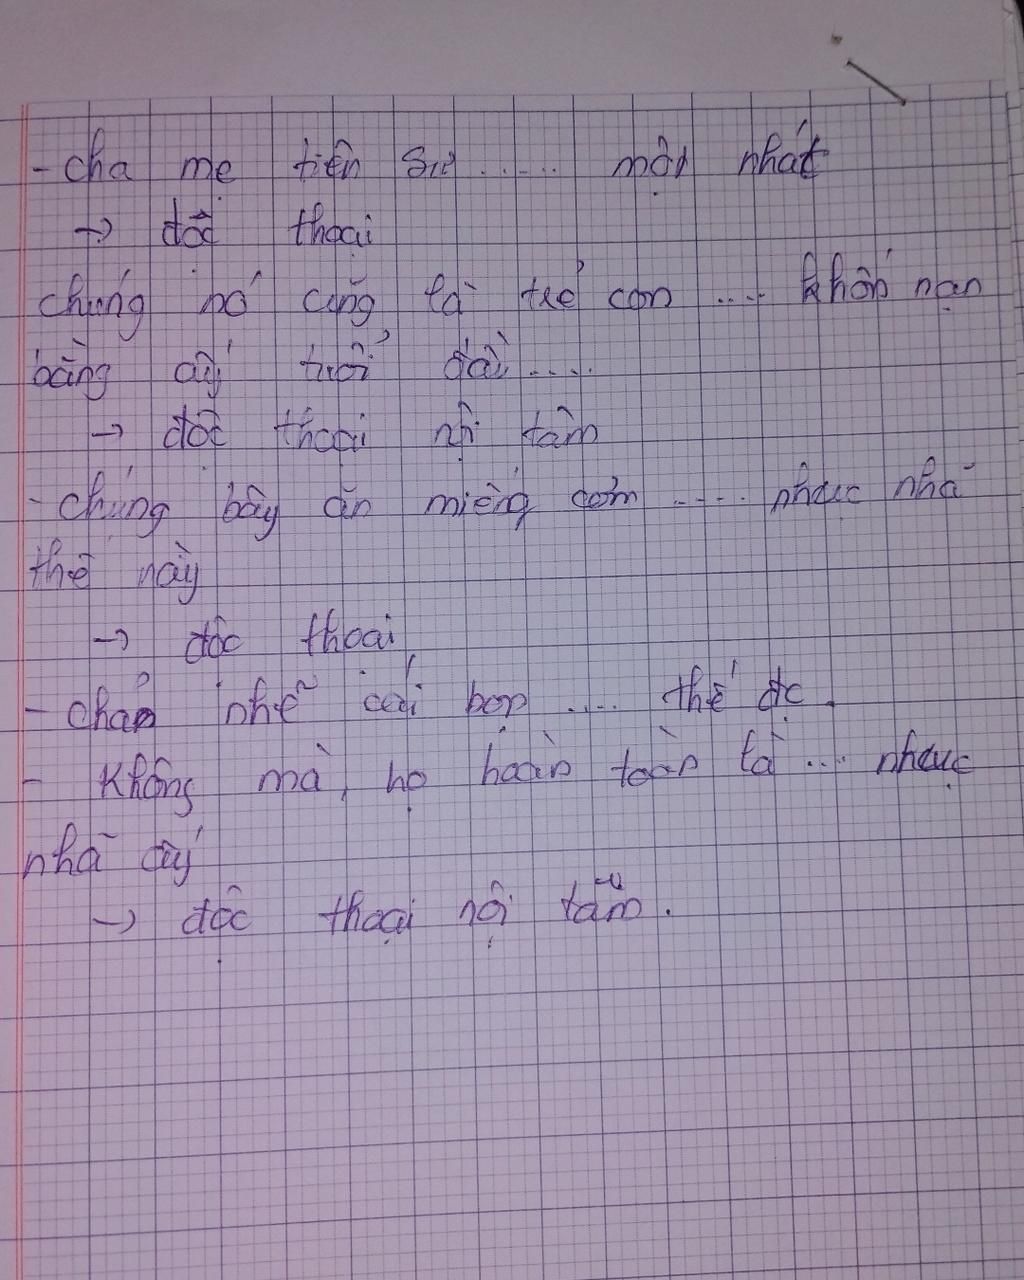 - cha mẹ tiên sư ...... một nhát
→ độc thoại
chúng nó cũng là trẻ con .... khốn nạn
bằng ấy tuổi đầu ....
→ độc thoại nội tâm
- chúng bây ăn miếng cơm ..... nhục nhã
thế này
→ độc thoại
- chả nhẽ cái bọn .... thế đc.
- Không mà, họ hoàn toàn là .... nhục
nhã ấy
→ độc thoại nội tâm.